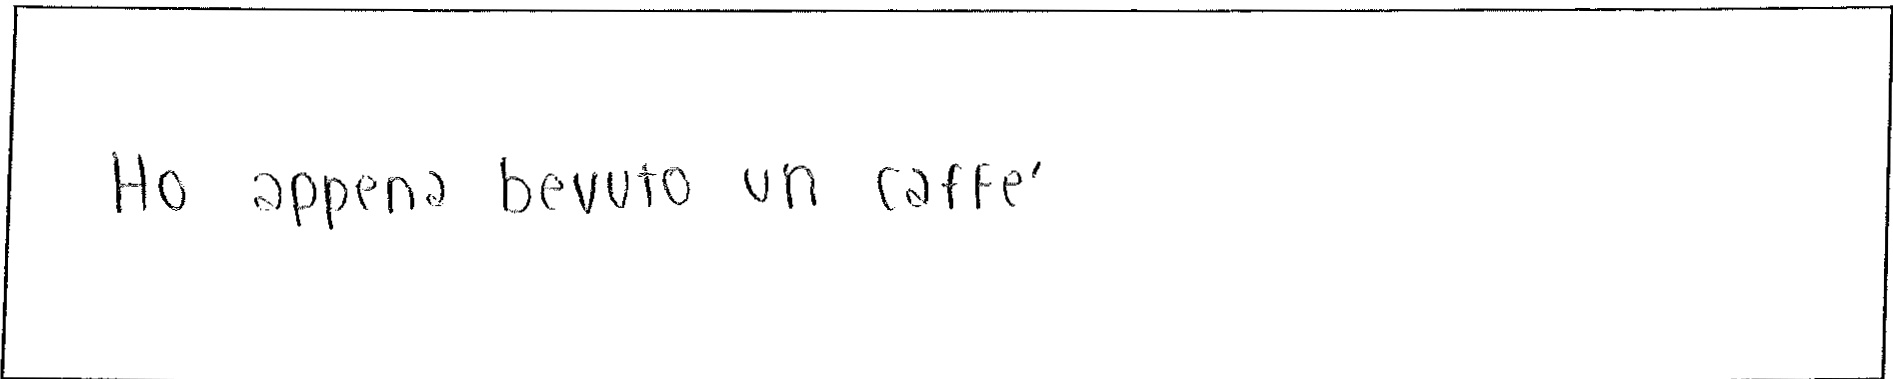 Ho appena bevuto un caffe'